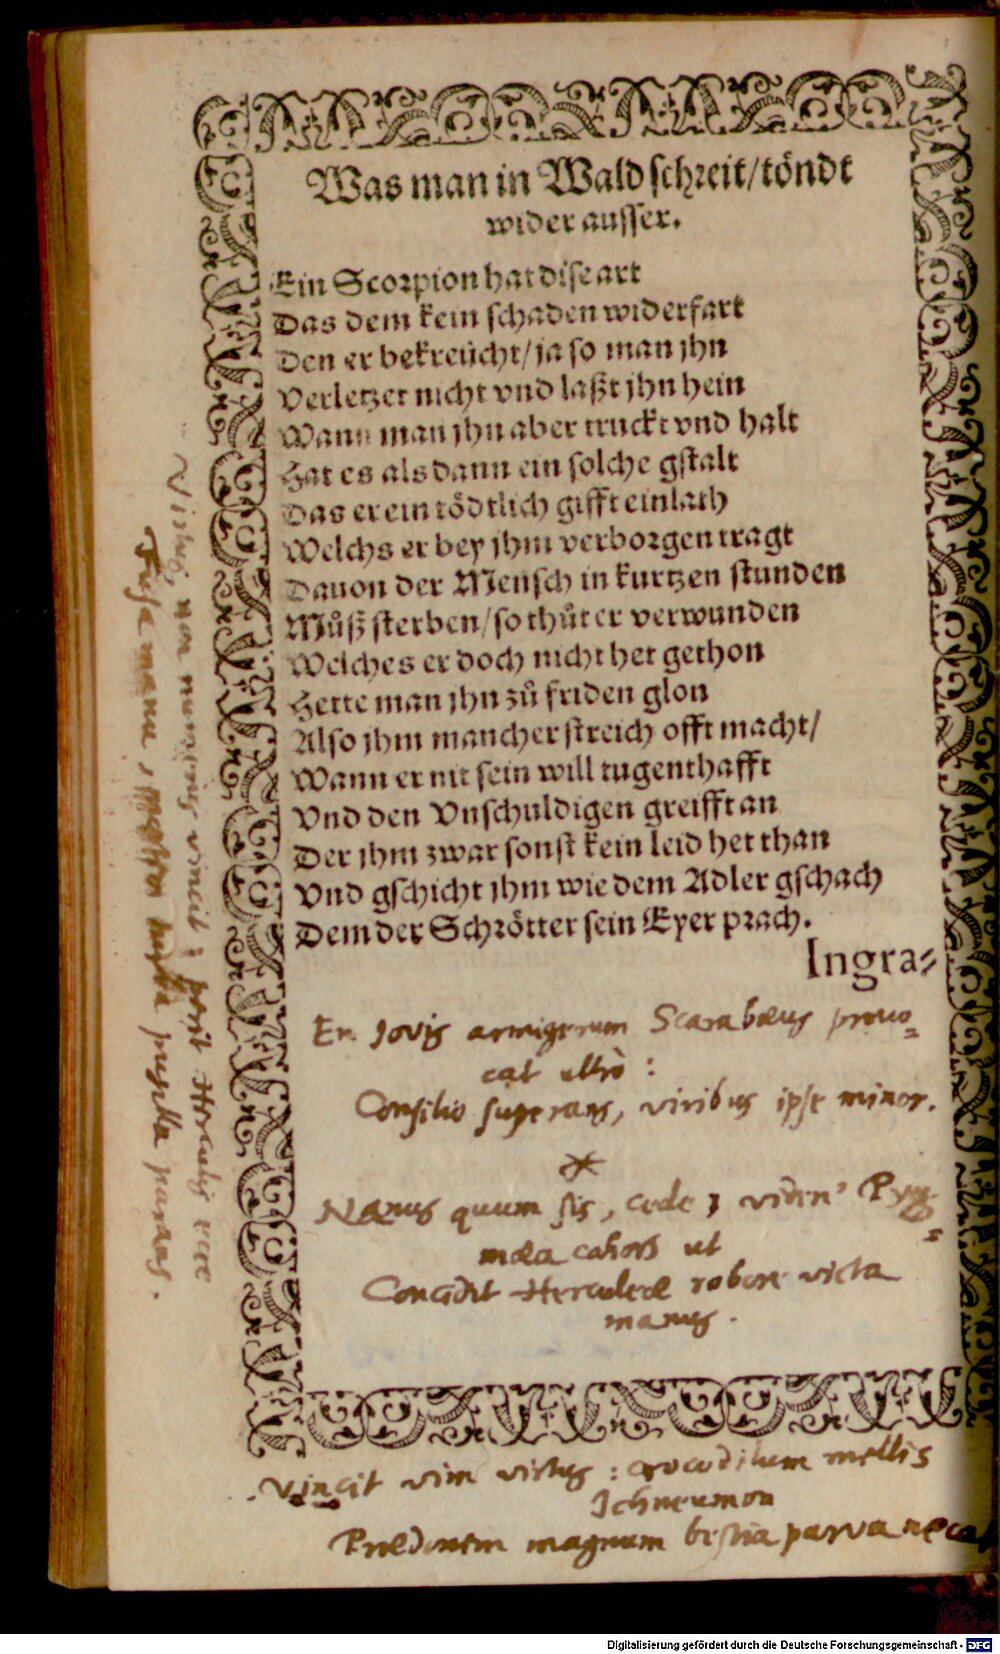 Was man in Wald schreit/töndt
wider ausser.
Ein Scorpion hat dise art
Das dem kein schaden widerfart
Den er bekreücht/ja so man jhn
Verletzet nicht vnd laßt jhn hein
Wann man jhn aber truckt vnd halt
Hat es als dann ein solche gstalt
Das er ein tödtlich gifft einlath
Welchs er bey jhm verborgen tragt
Dauon der Mensch in kurtzen stunden
Můß sterben/so thůt er verwunden
Welches er doch nicht het gethon
Hette man jhn zů friden glon
Also jhm mancher streich offt macht/
Wann er nit sein will tugenthafft
Vnd den Vnschuldigen greifft an
Der jhm zwar sonst kein leid het than
Vnd gschicht jhm wie dem Adler gschach
Dem der Schrötter sein Eyer prach.
Ingra=
En Jovis armigerum Scarabæus provo=
cat ultrò :
Consilio superans, viribus ipse minor.
Nanus quum sis, cede ; viden' Pyg=
mæa cohors ut
Concidit Herculeæ robore victa
manus.
Vincit vim virtus : crocodilum mellis
Ichneumon
Prædonem magnum bestia parva neca
Virtus, non numerus vincit ; perit Herculis
manu, pusilla